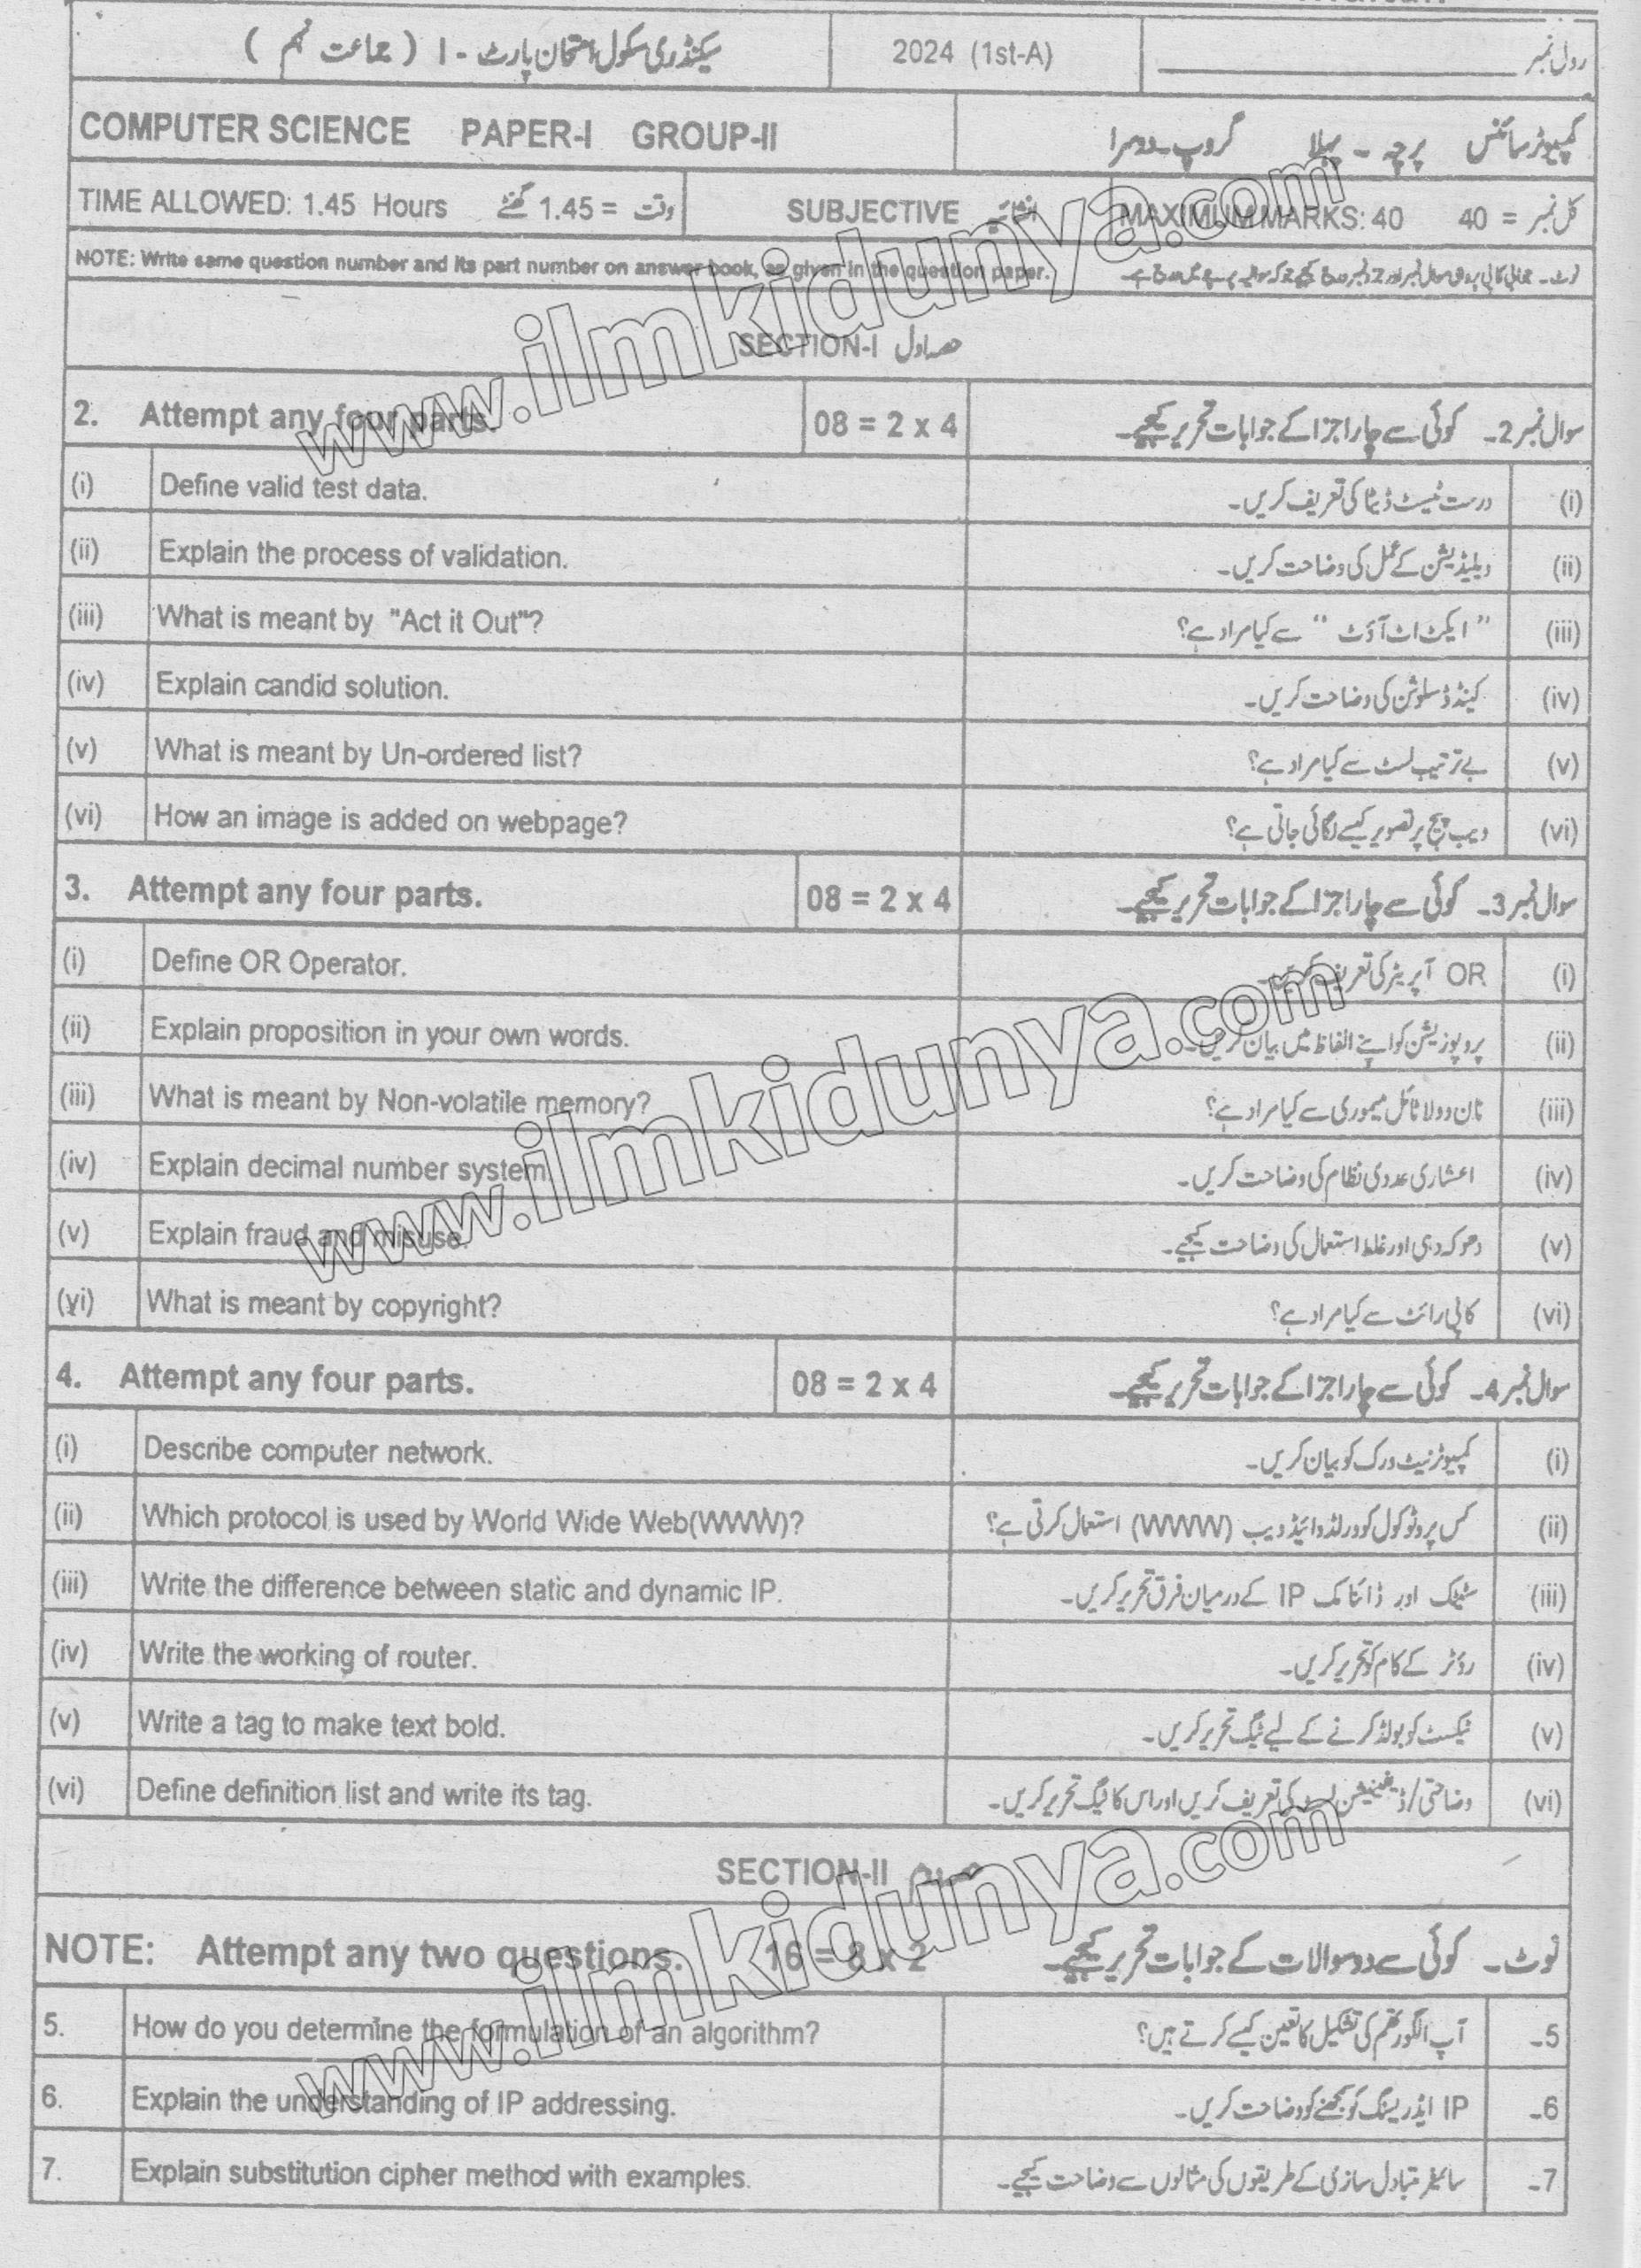 سیکنڈری سکول امتحان پارٹ - I ( جماعت نہم ) 2024 (1st-A) رول نمبر
COMPUTER SCIENCE PAPER-I GROUP-II کمپیوٹر سائنس پرچہ - پہلا گروپ - دوسرا
TIME ALLOWED: 1.45 Hours وقت = 1.45 گھنٹے SUBJECTIVE انشائیہ MAXIMUM MARKS: 40 کل نمبر = 40
NOTE: Write same question number and its part number on answer book, as given in the question paper.
SECTION-I حصہ اول
2. Attempt any four parts. 08 = 2 x 4 سوال نمبر 2۔ کوئی سے چار اجزا کے جوابات تحریر کیجیے۔
(i) Define valid test data. درست ٹیسٹ ڈیٹا کی تعریف کریں۔ (i)
(ii) Explain the process of validation. ویلیڈیشن کے عمل کی وضاحت کریں۔ (ii)
(iii) What is meant by "Act it Out"? "ایکٹ اٹ آؤٹ" سے کیا مراد ہے؟ (iii)
(iv) Explain candid solution. کینڈڈ سلوشن کی وضاحت کریں۔ (iv)
(v) What is meant by Un-ordered list? بے ترتیب لسٹ سے کیا مراد ہے؟ (v)
(vi) How an image is added on webpage? ویب پیج پر تصویر کیسے لگائی جاتی ہے؟ (vi)
3. Attempt any four parts. 08 = 2 x 4 سوال نمبر 3۔ کوئی سے چار اجزا کے جوابات تحریر کیجیے۔
(i) Define OR Operator. OR آپریٹر کی تعریف (i)
(ii) Explain proposition in your own words. پروپوزیشن کو اپنے الفاظ میں بیان کریں۔ (ii)
(iii) What is meant by Non-volatile memory? نان وولاٹائل میموری سے کیا مراد ہے؟ (iii)
(iv) Explain decimal number system. اعشاری عددی نظام کی وضاحت کریں۔ (iv)
(v) Explain fraud and misuse. دھوکہ دہی اور غلط استعمال کی وضاحت کیجیے۔ (v)
(vi) What is meant by copyright? کاپی رائٹ سے کیا مراد ہے؟ (vi)
4. Attempt any four parts. 08 = 2 x 4 سوال نمبر 4۔ کوئی سے چار اجزا کے جوابات تحریر کیجیے۔
(i) Describe computer network. کمپیوٹر نیٹ ورک کو بیان کریں۔ (i)
(ii) Which protocol is used by World Wide Web(WWW)? کس پروٹوکول کو ورلڈ وائیڈ ویب (WWW) استعمال کرتی ہے؟ (ii)
(iii) Write the difference between static and dynamic IP. سٹیٹک اور ڈائنامک IP کے درمیان فرق تحریر کریں۔ (iii)
(iv) Write the working of router. روٹر کے کام کو تحریر کریں۔ (iv)
(v) Write a tag to make text bold. ٹیکسٹ کو بولڈ کرنے کے لیے ٹیگ تحریر کریں۔ (v)
(vi) Define definition list and write its tag. وضاحتی/ڈیفینیشن لسٹ کی تعریف کریں اور اس کا ٹیگ تحریر کریں۔ (vi)
SECTION-II
NOTE: Attempt any two questions. 16 = 8 x 2 نوٹ۔ کوئی سے دو سوالات کے جوابات تحریر کیجیے۔
5. How do you determine the formulation of an algorithm? آپ الگورتھم کی تشکیل کا تعین کیسے کرتے ہیں؟ 5۔
6. Explain the understanding of IP addressing. IP ایڈریسنگ کو سمجھنے کو وضاحت کریں۔ 6۔
7. Explain substitution cipher method with examples. سائفر متبادل سازی کے طریقوں کی مثالوں سے وضاحت کیجیے۔ 7۔
www.ilmkidunya.com
www.ilmkidunya.com
www.ilmkidunya.com